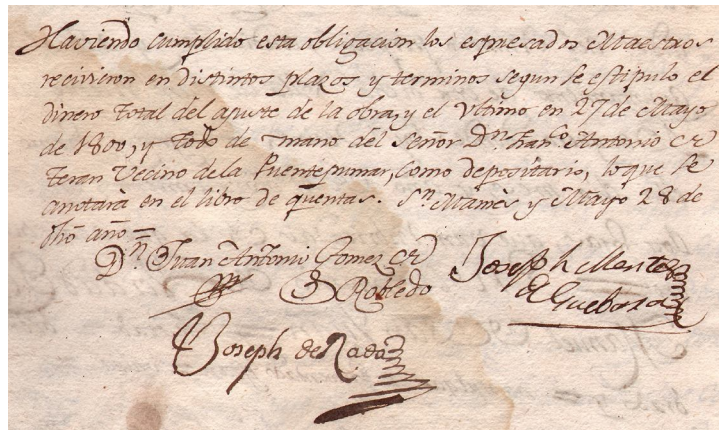 Haviendo cumplido esta obligacion los espresados Maestros
recivieron en distintos plazos y terminos segun se estipulo el
dinero total del ajuste de la obra, y el ultimo en 27 de Mayo
de 1800, y todo de mano del Señor Dn. Franco. Antonio de
Teran Vecino de la Puentepumar, como depositario, lo que se
anotará en el libro de quentas. Sn. Mamès y Mayo 28 de
dho año=
Dn. Juan Antonio Gomez de
Robledo
Joseph
Joseph de Rada